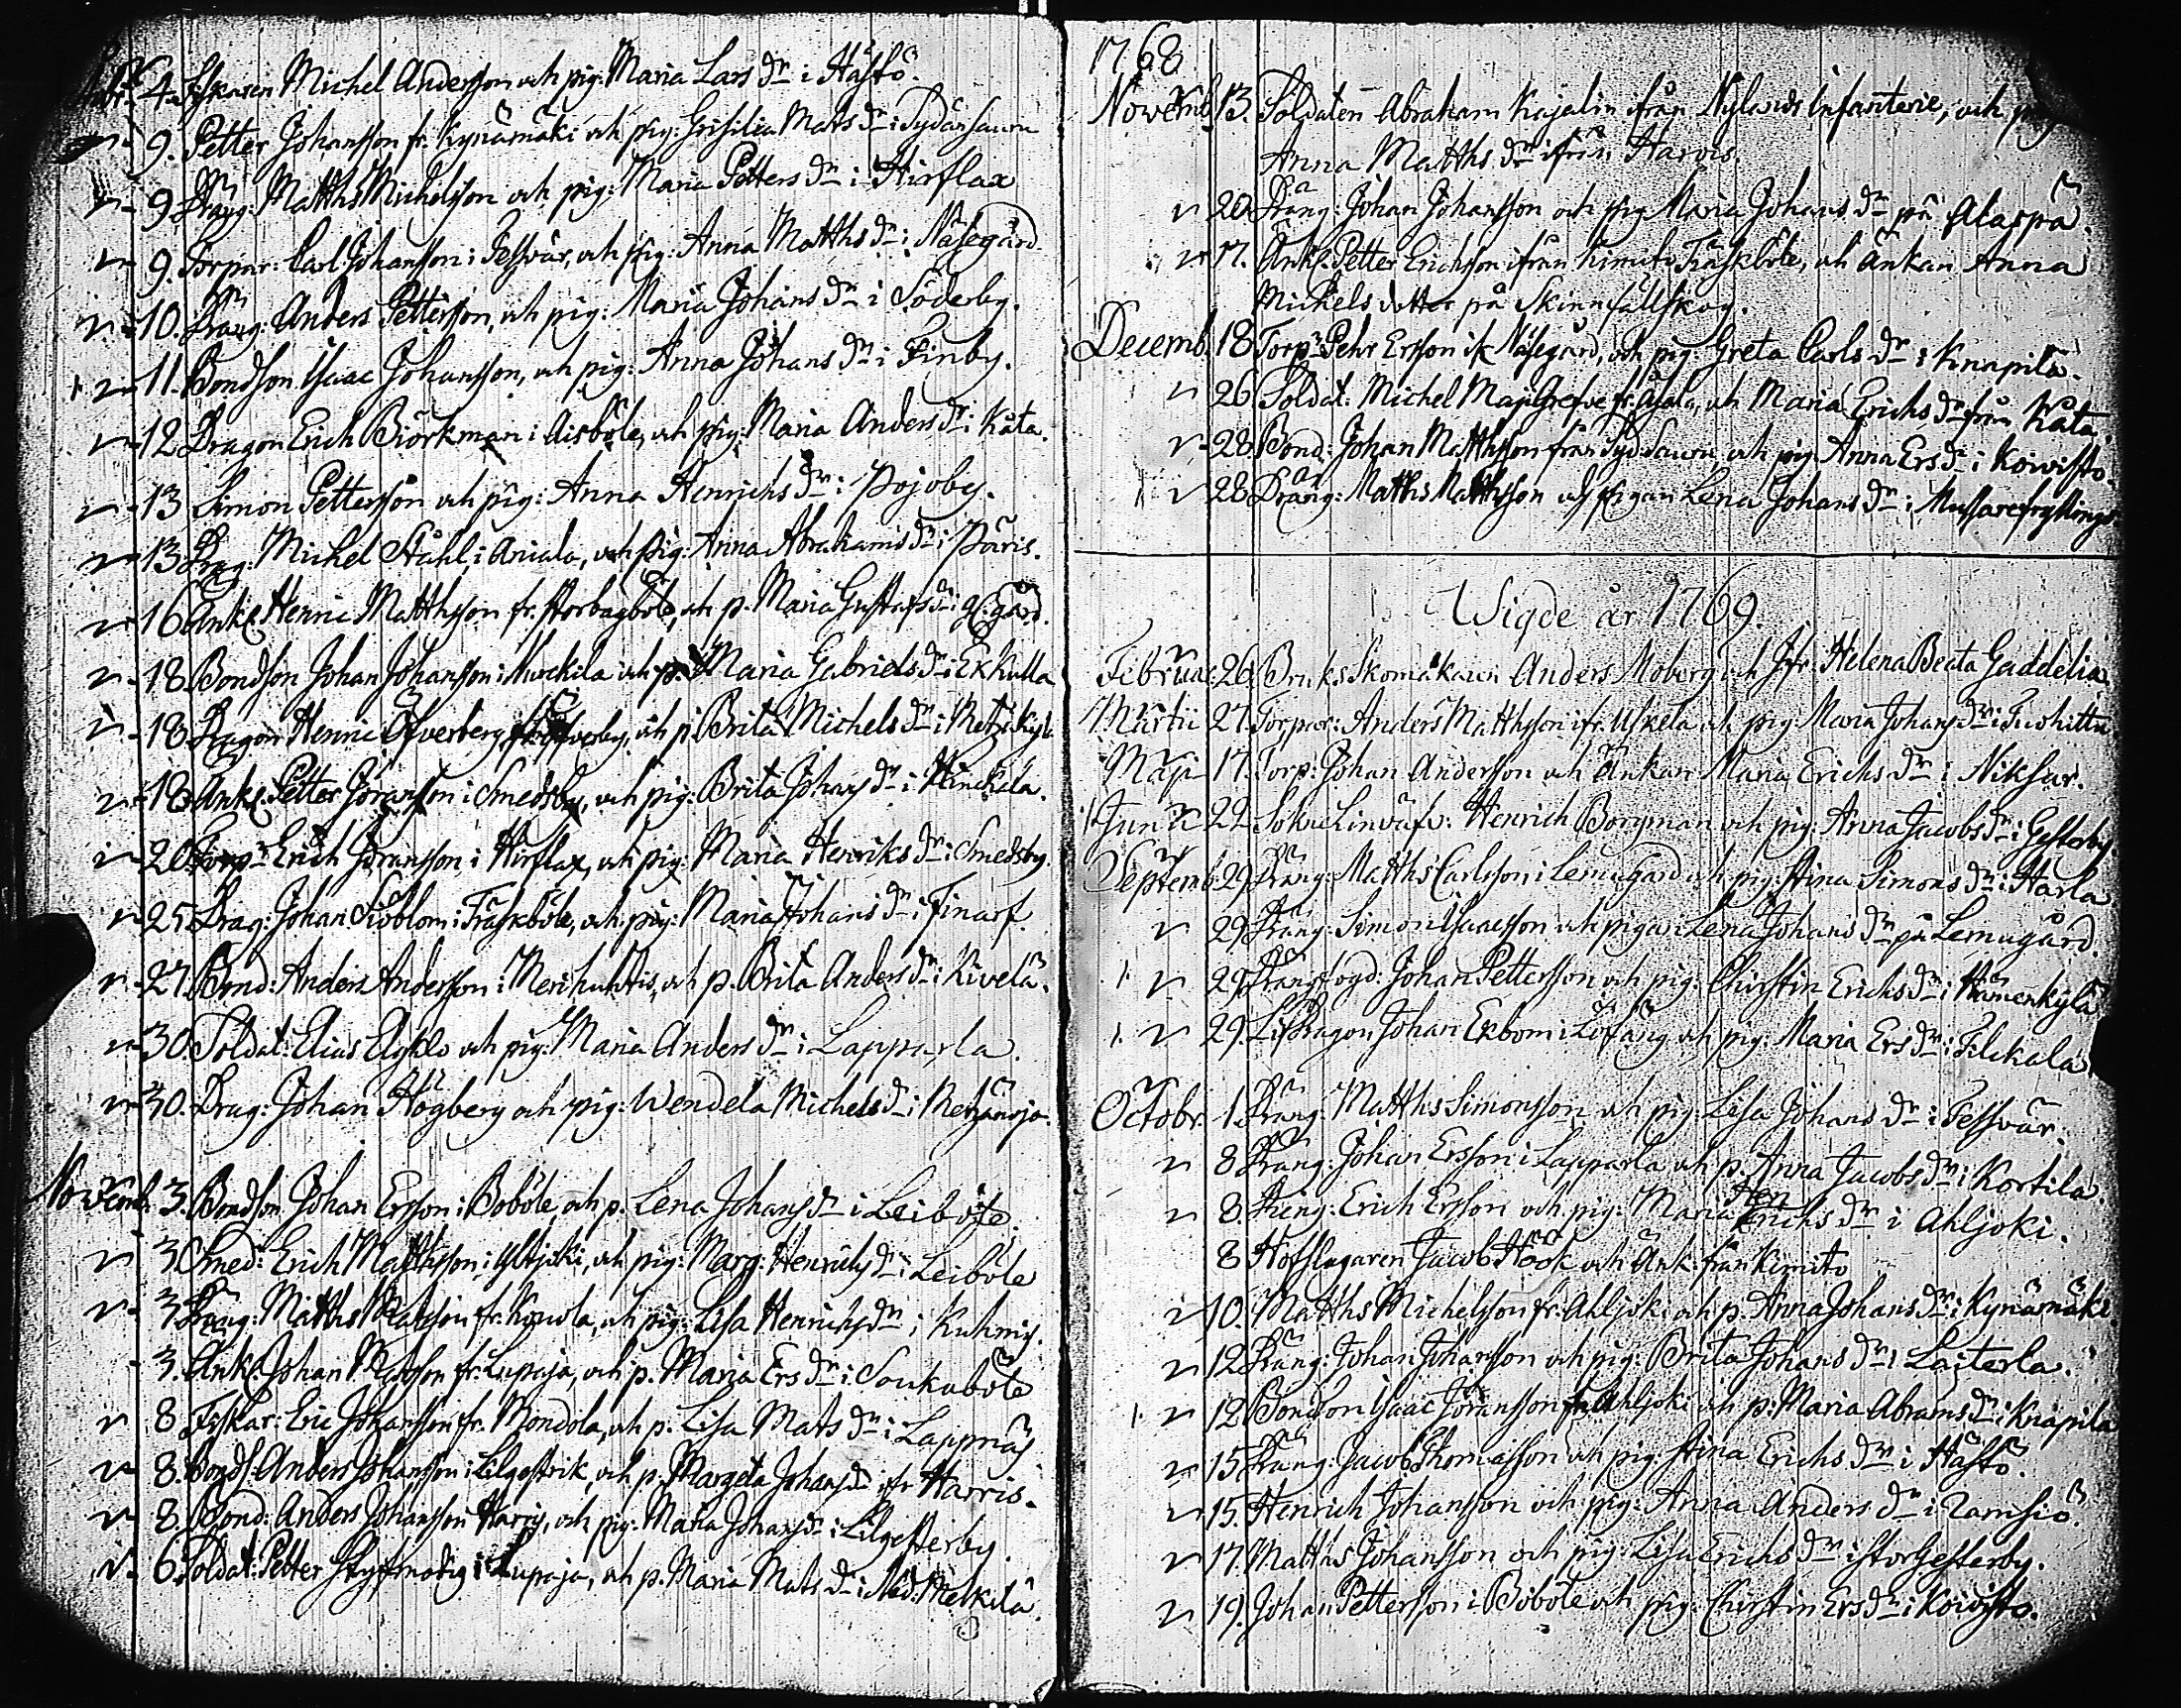 4. Fiskaren Michel Andersson och pig: Maria Lars dr i Håstö.
9. Petter Johansson fr. Kynämäki och pig: Mats dr i
9. Dräng: Matths Michelsson och pig: Maria Petters dr i Hirflax
9. Torpar: Carl Johansson i Tessvär, och pig: Anna Matths dr i Näsegård
10. Dräng: Anders Pettersson, och pig: Maria Johans dr i Söderby.
11. Bondson Isaac Johansson, och pig: Anna Johans dr i Finby.
12 Dragon Erich Biörkman i Aisböle, och pig: Maria Anders dr i Kåta.
13 Simon Pettersson och pig: Anna Henrichs dr i Pojoby.
13 Drag: Michel Ståhl i Aniala, och pig: Anna Abrahams dr i Päris.
16 Ankl. Henric Matthsson fr. Storbagböle, och p. Maria Gustafs dr i
18. Bondson Johan Johansson i och p. Maria Gabriels dr i Ekkulla
18. Dragon Henric Öfverberg och p. Brita Michels dr i Metzäkylä
18 Ankl. Petter Göransson i Smedsby, och pig: Brita Johans dr i
20 Torpr Erich Göransson i Hirflax, och pig: Maria Henriks dr i Smedsby.
25. Drag: Johan Siöblom i Träskböle, och pig: Maria Johans dr i Finarf.
27. Bond: Anders Andersson i och p. Brita Anders dr i Kivelä.
30. Soldat: Elias och pig: Maria Anders dr i Lapparla.
30. Drag: Johan Högberg och pig: Wendela Michels dr i
Novemb. 3. Bondson Johan Ersson i Boböle, och p. Lena Johans dr i Leiböle.
3 Smed: Erich Matthsson i och pig: Marg: Henrichs dr i Leiböle
3 Dräng: Matths Matsson fr. och pig: Lisa Henrichs dr i
3. Ankl. Johan Matsson fr. Lupaja, och p. Maria Ers dr i
8 Fiskar: Eric Johansson fr. Mondola, och p. Lisa Mats dr i Lappnäs
8. Bonds. Anders Johansson i och p. Margeta Johans dr fr Harris.
8. Bond: Anders Johansson i Harris, och pig: Maria Johans dr i Lilgesterby.
6. Soldat: Petter Styfmodig i Lupaja, och p. Maria Mats dr i Melkila.
1768
Novemb. 13. Soldaten Abraham Kajalin ifrån Nylands Infanterie, och
Anna Matths dr ifrån Harvis.
20. Dräng: Johan Johansson och pig. Maria Johans dr på Alaspä.
17. Ankl. Petter Erichsson ifrån Kimito Träskböle, och Änkan Anna
Michels dotter på Skinnfällskog.
Decemb. 18 Torpr Pehr Ersson i Näsegård, och pig: Greta Carls dr i Knapila.
26. Soldat: Michel och Maria Erichs dr från Kåta.
28. Bond: Johan Matthsson från och pig: Anna Ers dr i Koivisto.
28 Dräng: Matths Matthsson och pigan Lena Johans dr i
Wigde år 1769.
Februar: 26. Bruks Skomakaren Anders Moberg och Jfr. Helena Beata Gaddelia
Martii 27. Torpar: Anders Matthsson ifr. Uskela och pig: Maria Johans dr i
Maji 17. Torp: Johan Andersson och Änkan Maria Erichs dr i Niksar.
Junii 22. Henrich Borgman och pig: Anna Jacobs dr i Gesterby.
Septemb. 29. Dräng: Matths Carlsson i Lemugård och pig: Stina Simons dr i Harla
29. Dräng: Simon Isaacsson och pigan Lena Johans dr på Lemugård.
29. Drängfogd: Johan Pettersson och pig: Chirstin Erichs dr i Hämenkylä
29. Lif Dragon Johan Ekbom i Löfäng och pig: Maria Ers dr i Filckala
Octobr. 1. Dräng: Matths Simonsson och pig: Lisa Johans dr i Tessvär.
8 Dräng: Johan Ersson i Lapparla och p. Anna Jacobs dr i Kortila.
8. Dräng: Erich Ersson och pig: Maria Hen Erichs dr i Ahljoki.
8. Hofslagaren Jacob Höök och Änk. från Kimito
10. Matths Michelsson fr. Ahljoki och p. Anna Johans dr i Kynämäki
12 Dräng: Johan Johansson och pig: Brita Johans dr i Laiterla.
12. Bondson Isaac Göransson fr Ahljoki och p: Maria Abrams dr i Knapila
15 Dräng: Jacob Thomasson och pig Stina Erichs dr i Håstö.
15. Henrich Johansson och pig: Anna Anders dr i Ramsiö.
17. Matths Johansson och pig: Lisa Erichs dr i StorGesterby.
19. Johan Pettersson i Boböle och pig: Chirstin Ers dr i Koivisto.